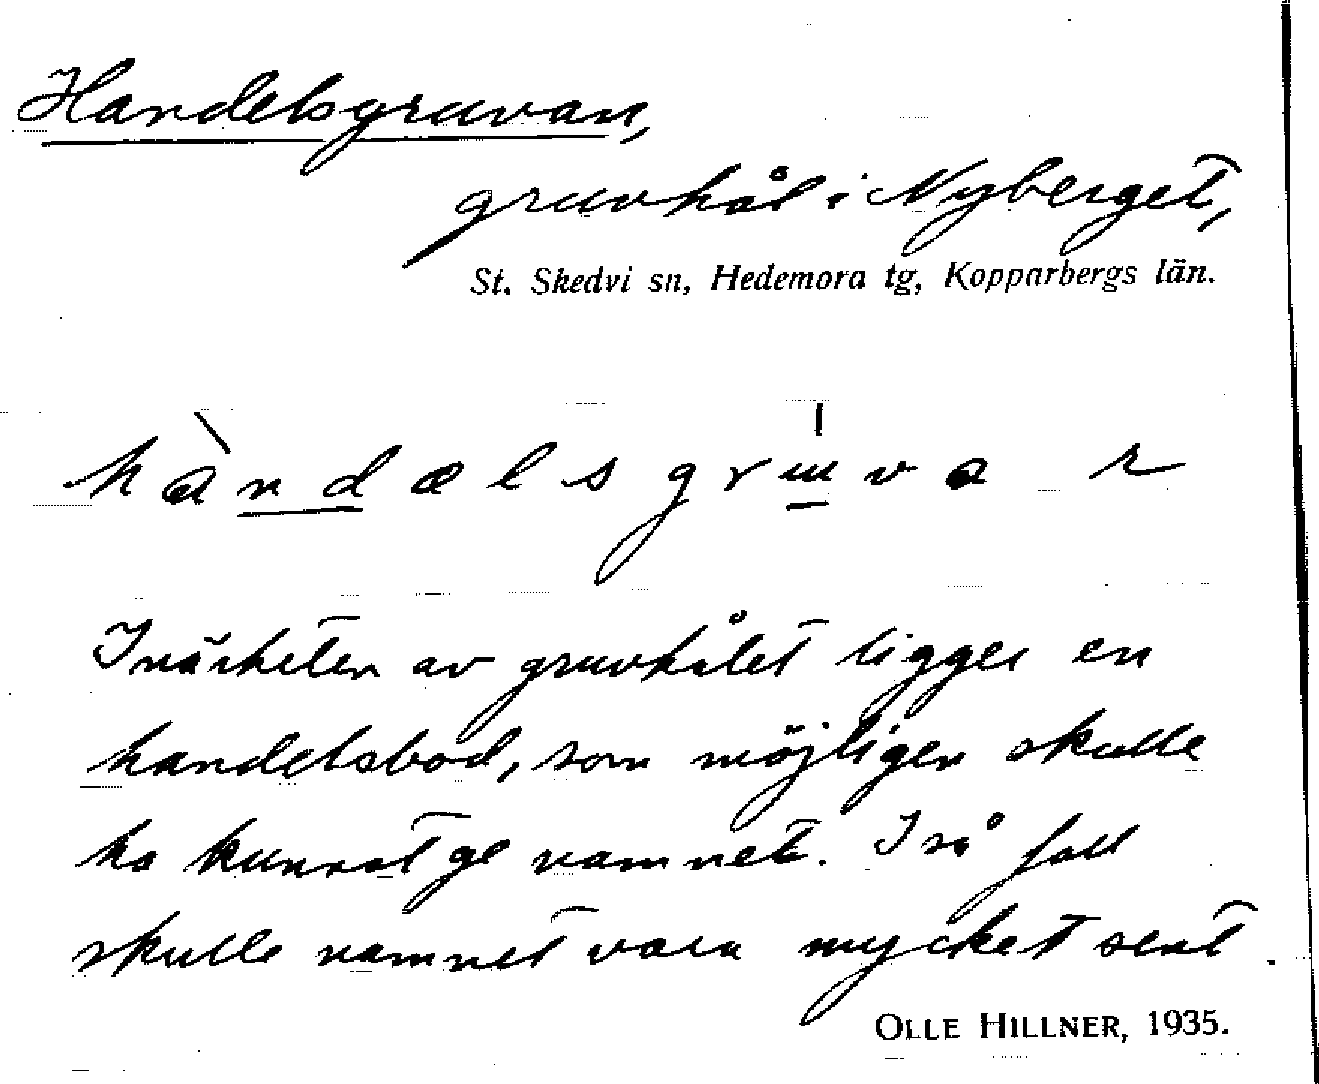 Handelsgruvan,
gruvhål i Nyberget,
St. Skedvi sn, Hedemora tg, Kopparbergs län.
hàndælsgruvar
I närheten av gruvhålet ligger en
handelsbod, som möjligen skulle
ha kunnat ge namnet. I så fall
skulle namnet vara mycket sent.
OLLE HILLNER, 1935.